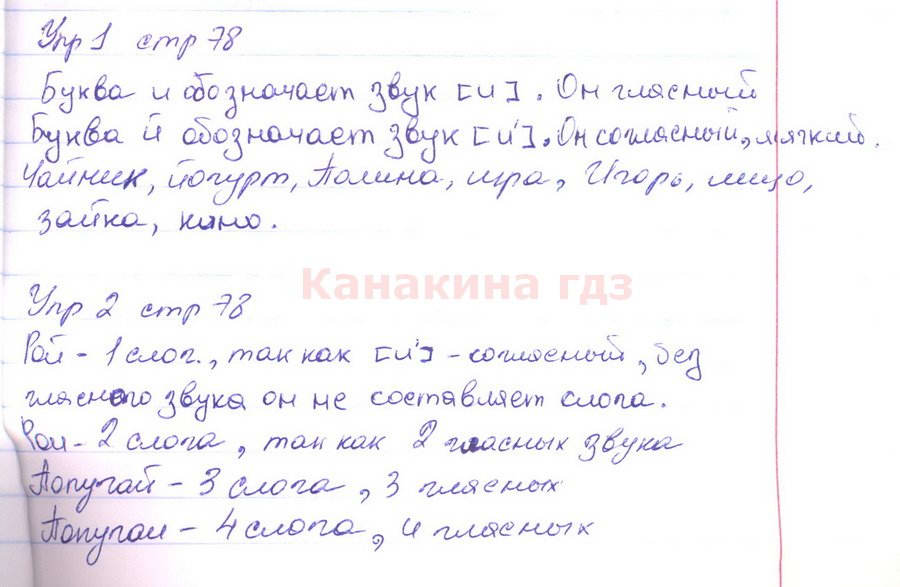 Упр 1 стр 78
Буква и обозначает звук [и]. Он гласный
Буква й обозначает звук [и'], Он согласный, мягкий.
Чайник, йогурт, Полина, игра, Игорь, лицо,
зайка, кино.
Канакина гдз
Упр 2 стр 78
Рой - 1 слог., так как [и'] - согласный, без
гласного звука он не составляет слога.
Рои - 2 слога, так как 2 гласных звука
Попугай - 3 слога, 3 гласных
Попугаи - 4 слога, 4 гласных